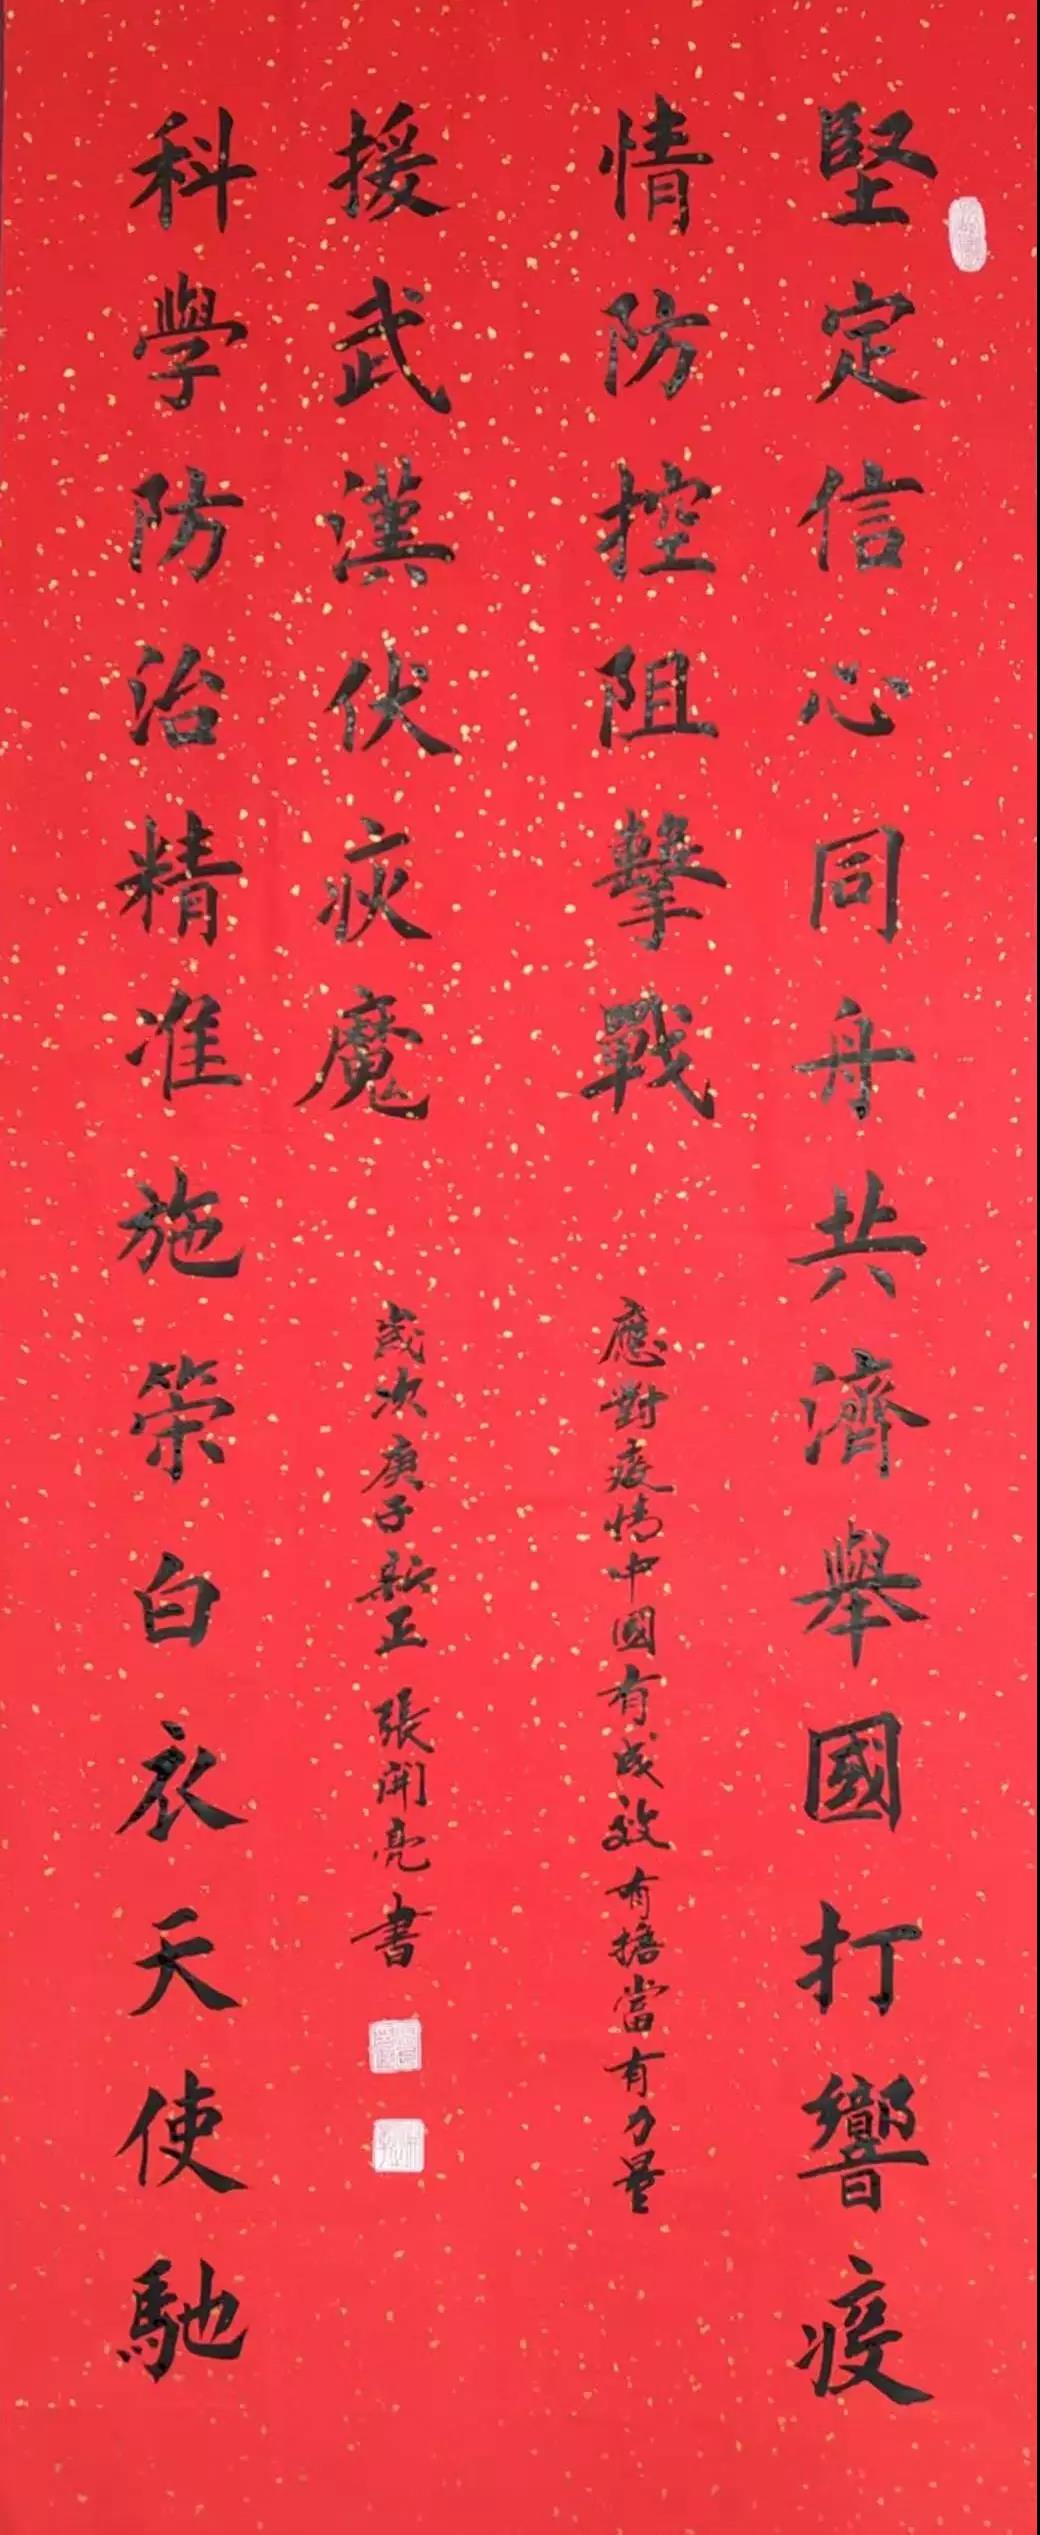 堅定信心同舟共濟舉國打響疫
情防控阻擊戰
應對疫情中國有成效有擔當有力量
科學防治精准施策白衣天使馳
援武漢伏疾魔
歲次庚子新正 張開亮書